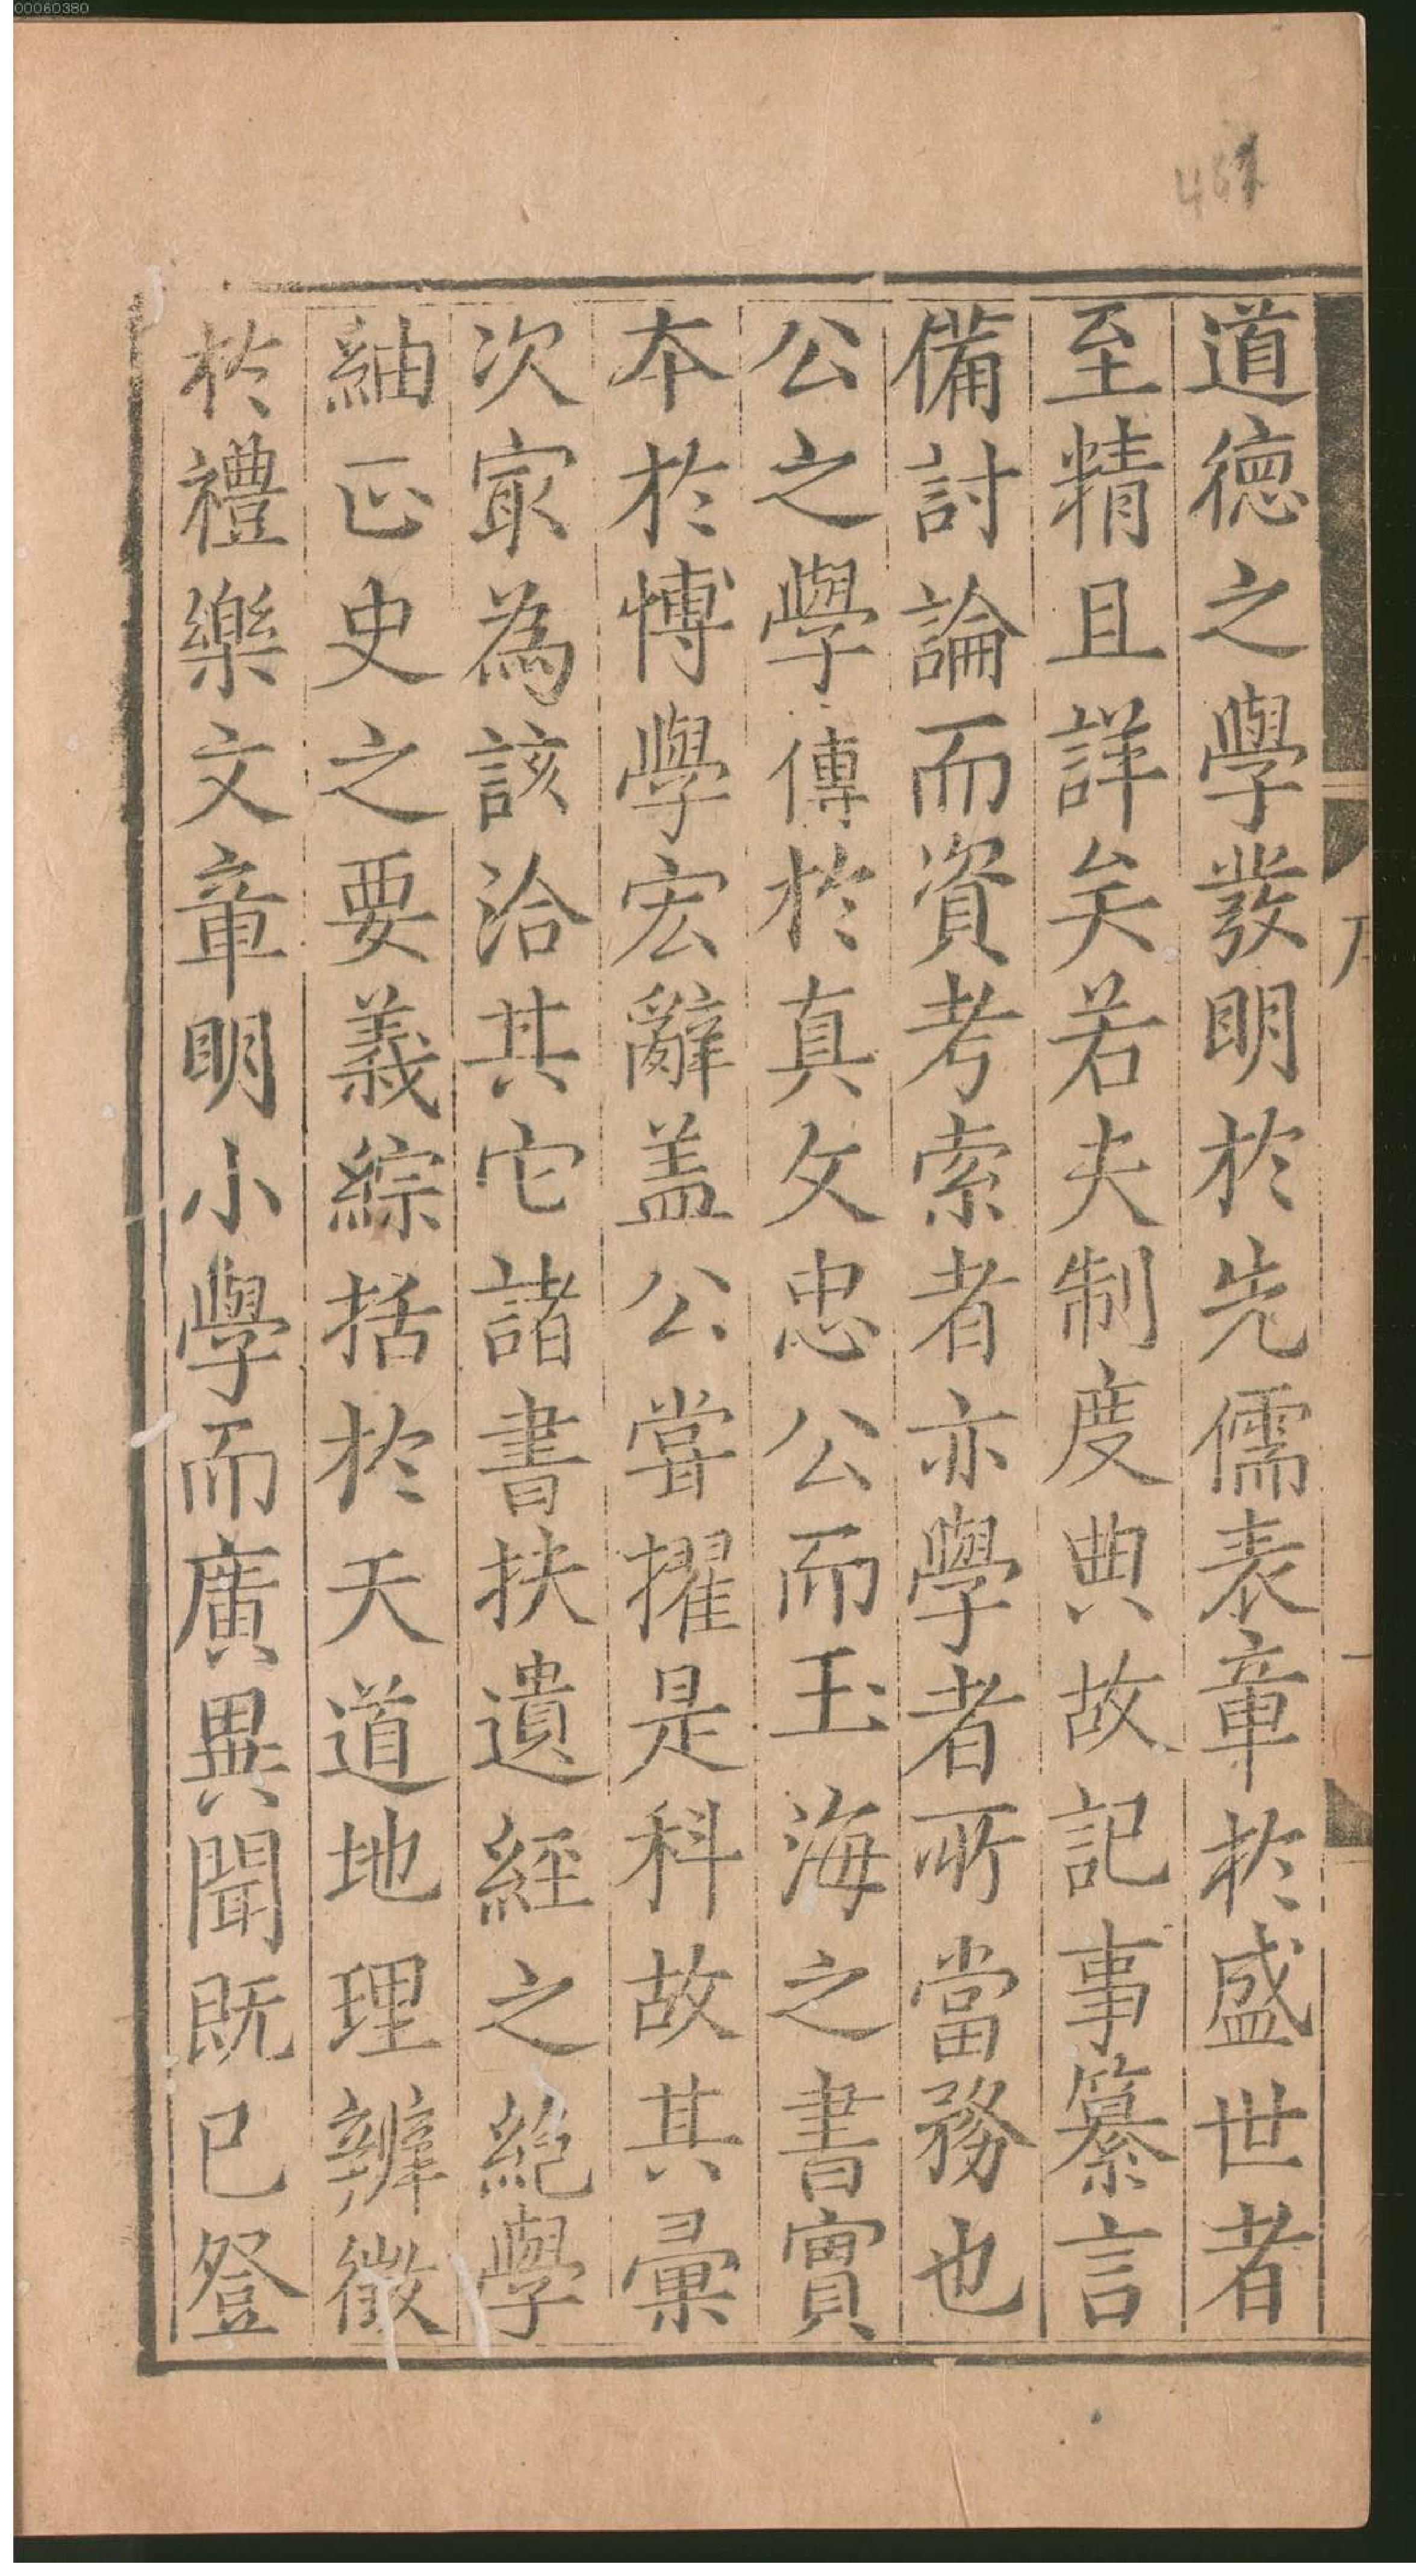 00060380
道德之學發明於先儒表章於盛世者
至精且詳矣若夫制度典故記事纂言
備討論而資考索者亦學者所當務也
公之學傳於真文忠公而玉海之書實
本於博學宏辭盖公嘗擢是科故其彙
次㝡為該洽其它諸書抉遺經之絕學
紬正史之要義綜括於天道地理辨徵
於禮樂文章明小學而廣異聞既已登